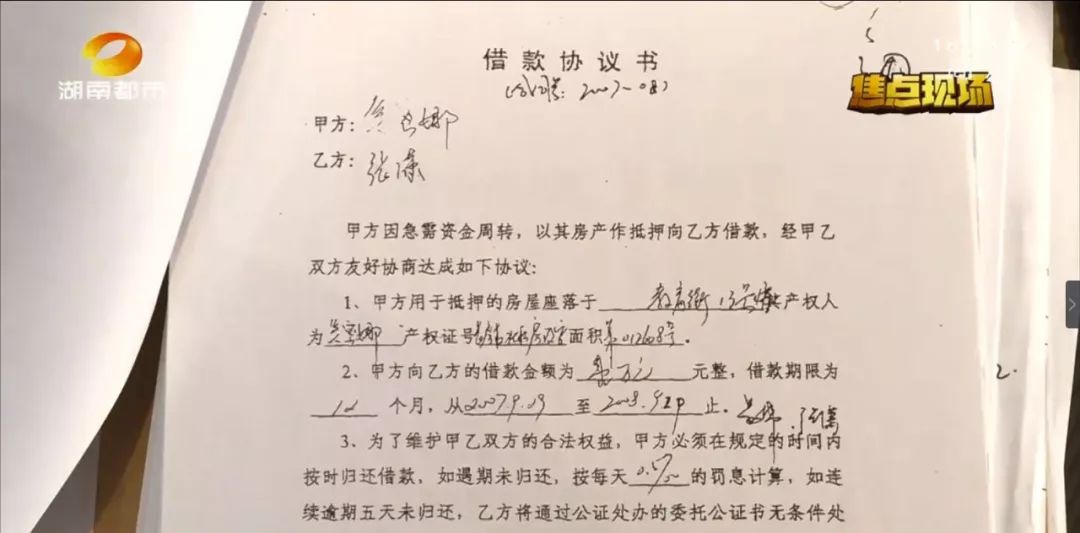 湖南都市
焦点现场
借款协议书
甲方：
乙方：张
甲方因急需资金周转，以其房产作抵押向乙方借款，经甲乙
双方友好协商达成如下协议：
1、甲方用于抵押的房屋座落于 教育街 产权人
为 产权证号 面积 。
2、甲方向乙方的借款金额为 元整，借款期限为
12 个月，从2007.9.29 至 2008.9.29 止。
2.
3、为了维护甲乙双方的合法权益，甲方必须在规定的时间内
按时归还借款，如遇期未归还，按每天 的罚息计算，如连
续逾期五天未归还，乙方将通过公证处办的委托公证书无条件处